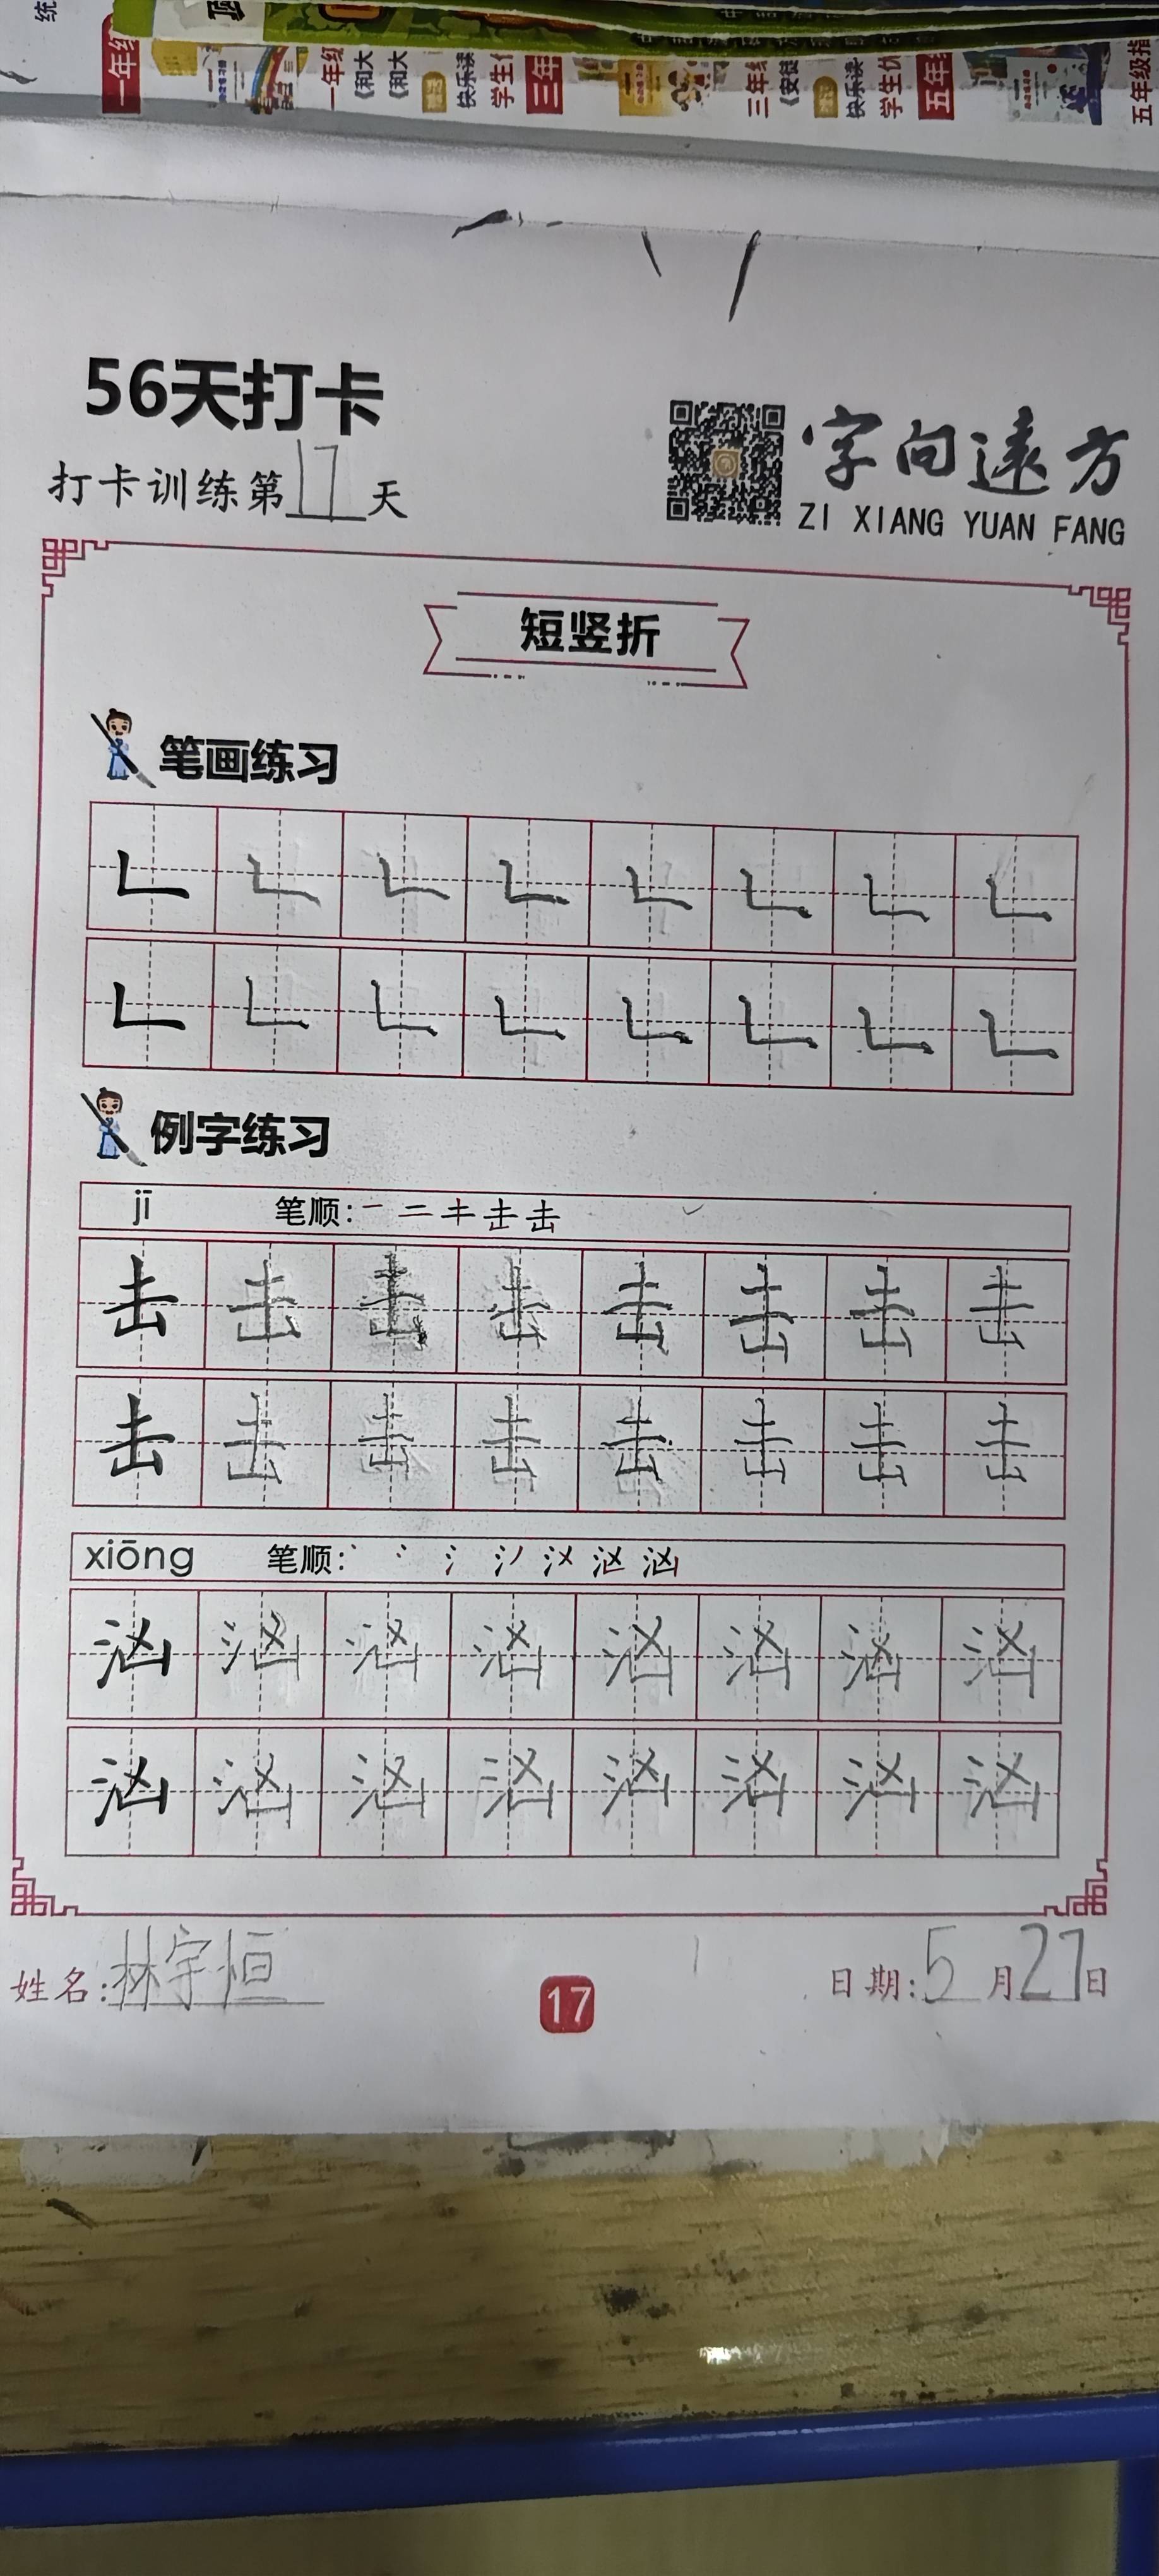 统
一年级
一年级
《和大
《和大
快乐读
学生
三年
三年级
《安徒
快乐读
学生优
五年
五年级指
56天打卡
打卡训练第17天
字向遠方
ZI XIANG YUAN FANG
短竖折
笔画练习
𠃊 𠃊 𠃊 𠃊 𠃊 𠃊 𠃊 𠃊
𠃊 𠃊 𠃊 𠃊 𠃊 𠃊 𠃊 𠃊
例字练习
jī 笔顺: 一 二 キ 击 击
击 击 击 击 击 击 击 击
击 击 击 击 击 击 击 击
xiōng 笔顺: 丶 冫 氵 汹
汹 汹 汹 汹 汹 汹 汹 汹
汹 汹 汹 汹 汹 汹 汹 汹
姓名:林宇恒
17
日期:5月27日